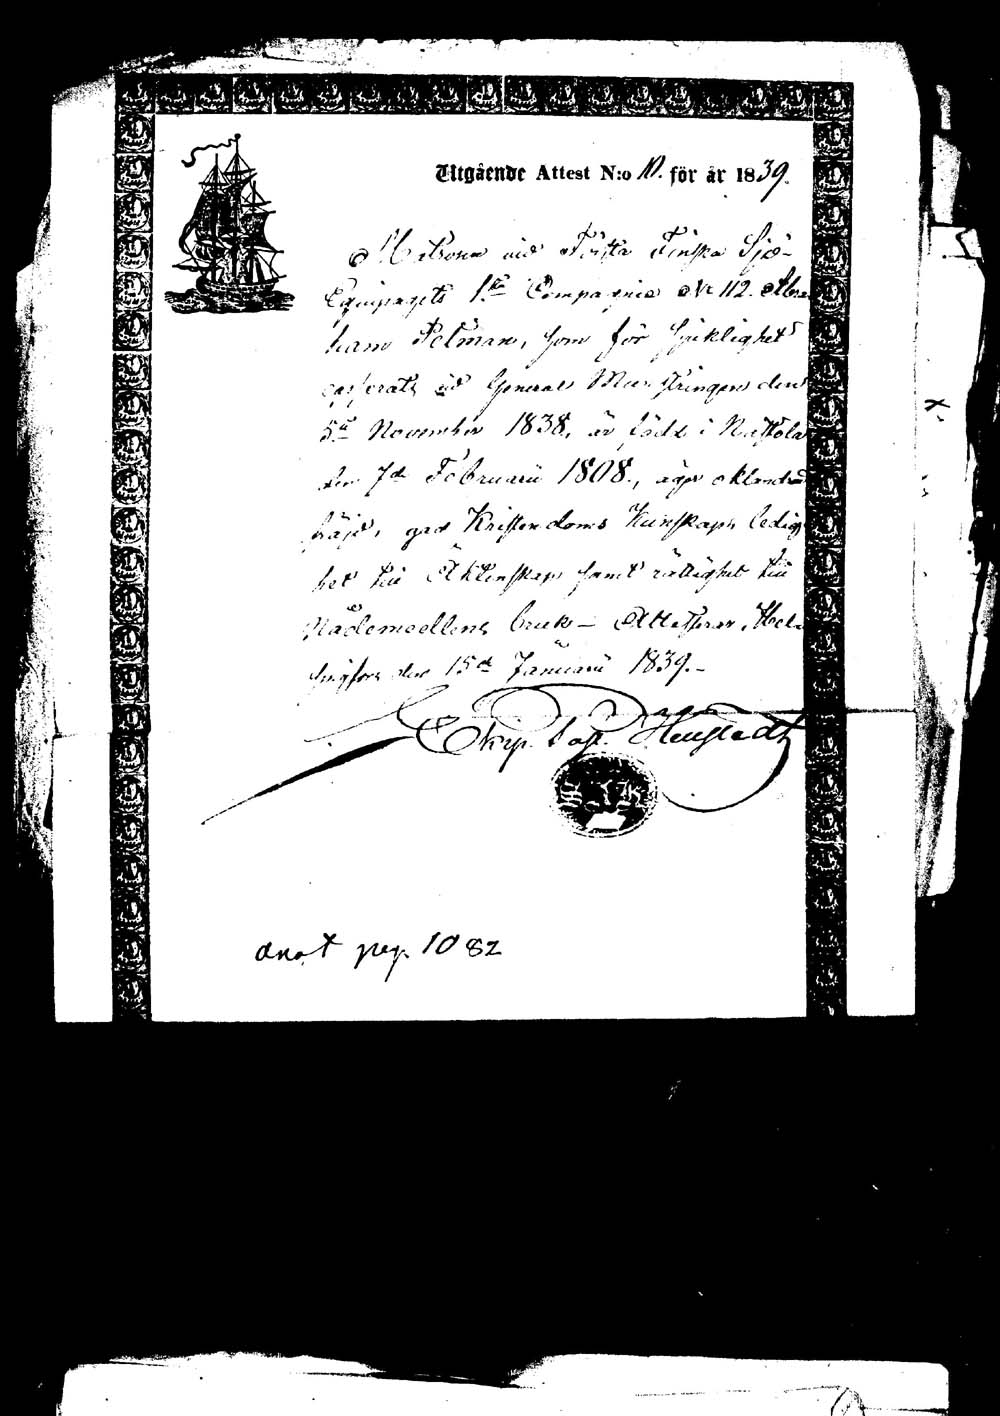 Utgående Attest N:o 10. för år 1839.
Matrosen vid Första Finska Sjö-
Equipagets 1:sta Compagnie No 112. Abra
ham Petman, som för sjuklighet
casserats vid General Mönstringen den
5:te November 1838, är född i Nastola
den 7de Februarii 1808., äger oklandrad
fräjd, god Kristendoms Kunskap, ledig
het till Äktenskap samt rättighet till
Nådemedlens bruk – Attesterar, Hel
singfors den 15de Januarii 1839.–
Ekip. Past.
S F E
anot pag. 1082